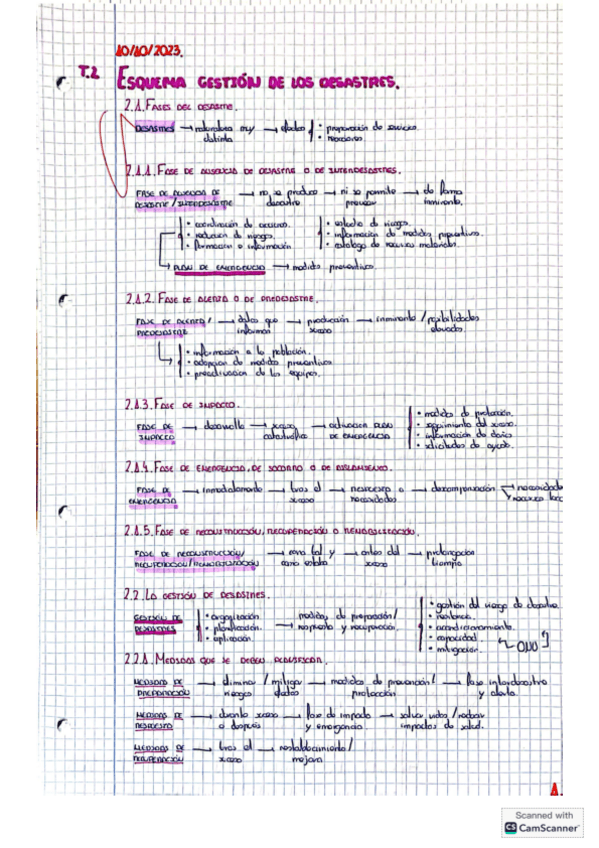 10/10/2023.
T.2 ESQUEMA GESTIÓN DE LOS DESASTRES.
2.1. FASES DEL DESASTRE.
DESASTRES → naturaleza muy distinta → efectos • preparación de servicios.
• reacciones.
2.1.1. FASE DE AUSENCIA DE DESASTRE O DE INTERDESASTRES.
FASE DE AUSENCIA DE DESASTRE / INTERDESASTRE → no se produce desastre → ni se permite prever → de forma inminente.
• coordinación de
• reducción de riesgos.
• formación e información
• estudio de riesgos.
• información de medidas preventivas.
• catálogo de recursos materiales.
→ PLAN DE EMERGENCIA → medidas preventivas.
2.1.2. FASE DE ALERTA O DE PREDESASTRE.
FASE DE ALERTA / PREDESASTRE → datos que informan → producción suceso → inminente / posibilidades elevadas
• información a la población.
• adopción de medidas preventivas
• preactivación de los equipos.
2.1.3. FASE DE IMPACTO.
FASE DE IMPACTO → desarrollo → suceso catastrófico → activación PLAN DE EMERGENCIA
• medidas de protección.
• seguimiento del suceso.
• información de daños
• solicitudes de ayuda.
2.1.4. FASE DE EMERGENCIA, DE SOCORRO O DE AISLAMIENTO.
FASE DE EMERGENCIA → inmediatamente → tras el suceso → respuesta a necesidades → descompensación necesidades
2.1.5. FASE DE RECONSTRUCCIÓN, RECUPERACIÓN O REHABILITACIÓN.
FASE DE RECONSTRUCCIÓN / RECUPERACIÓN / REHABILITACIÓN → como tal y como estaba → antes del suceso → prolongación tiempo
2.2. LA GESTIÓN DE DESASTRES.
GESTIÓN DE DESASTRES • organización
• planificación.
• aplicación
→ medidas de preparación / respuesta y recuperación.
• gestión del riesgo de desastre.
• resiliencia.
• acondicionamiento.
• capacidad.
• mitigación.
[ONU]
2.2.1. MEDIDAS QUE SE DEBEN PLANIFICAR.
MEDIDAS DE PREPARACIÓN → eliminar / mitigar riesgos → medidas de prevención / protección → fase interdesastre y alerta
MEDIDAS DE RESPUESTA → durante suceso o después → fase de impacto y emergencia → salvar vidas / reducir impactos de salud.
MEDIDAS DE RECUPERACIÓN → tras el suceso → restablecimiento / mejora
1.
Scanned with
CS CamScanner